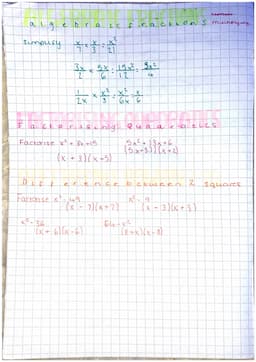 algebraic fractions
Simplify x/7 × x/3 = x²/21
3x/2 × 5x/6 = 15x²/12 = 5x²/4
1/2x × x²/3 = x²/6x = x/6
FACTORISING QUADRATICS
Factorising Quadratics
Factorise x² + 8x + 15
(x + 3)(x + 5)
5x² + 13x + 6
(5x + 3)(x + 2)
Difference between 2 squares
Factorise x² - 49
(x - 7)(x + 7)
x² - 9
(x - 3)(x + 3)
x² - 36
(x + 6)(x - 6)
64 - x²
(8 + x)(x - 8)